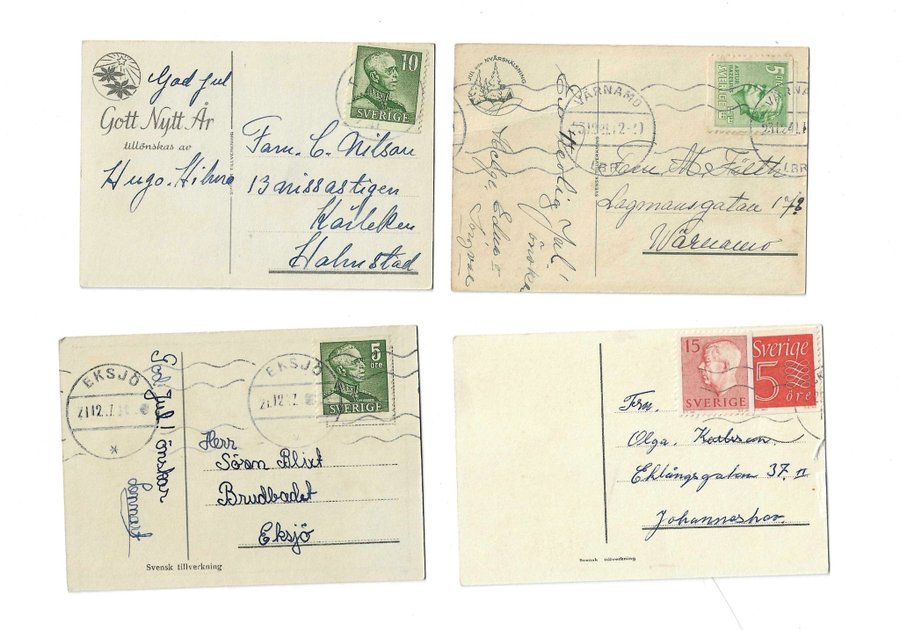 God jul
Gott Nytt År
tillönskas av
Hugo. Hilma
SVENSK TILLVERKNING
10
SVERIGE
Fam. C. Nilson
13 nissastigen
Kärleken
Halmstad
JUL- OCH NYÅRSHÄLSNING
En Härlig Jul!
önska
Edna
SVENSK TILLVERKNING
VÄRNAMO
LBR
5
SVERIGE
Fam M. Fälth
Lagmansgatan 17B
Wärnamo
EKSJÖ
21.12
God Jul! önskar
Lennart
EKSJÖ
21.12
5
öre
SVERIGE
Herr
Sören Blixt
Brudbadet
Eksjö
Svensk tillverkning
15
SVERIGE
Sverige
5
öre
Fru.
Olga. Karlsson.
Eklångsgatan 37. II
Johanneshov.
Svensk tillverkning